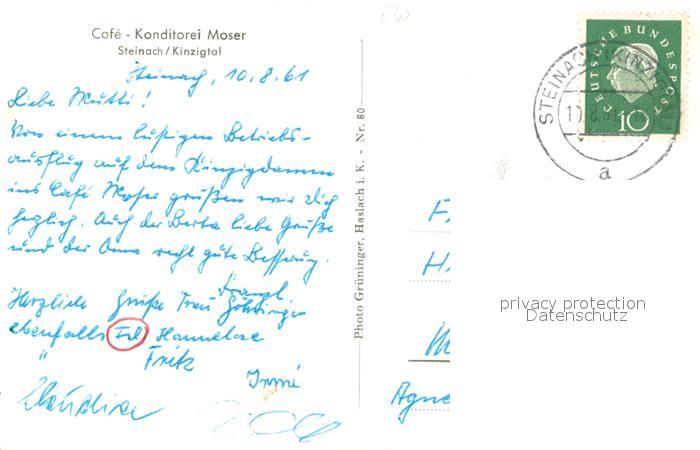 Café - Konditorei Moser
Steinach/Kinzigtal
Steinach, 10.8.61
Liebe Mutti!
Von einem lustigen Betriebs-
ausflug auf dem Kinzigdamm
ins Café Moser grüßen wir Dich
herzlich. Auch der Berta liebe Grüße
und der Oma recht gute Besserung.
Herzliche Grüße Frau Göhringer
ebenfalls Frl Hannelore
" Fritz
Irmi
Claudine
Photo Grüninger, Haslach i. K. - Nr. 80
DEUTSCHE BUNDESPOST
10
STEINACH (KINZIGTAL)
10.8.61
a
F
H
M
Agne
privacy protection
Datenschutz